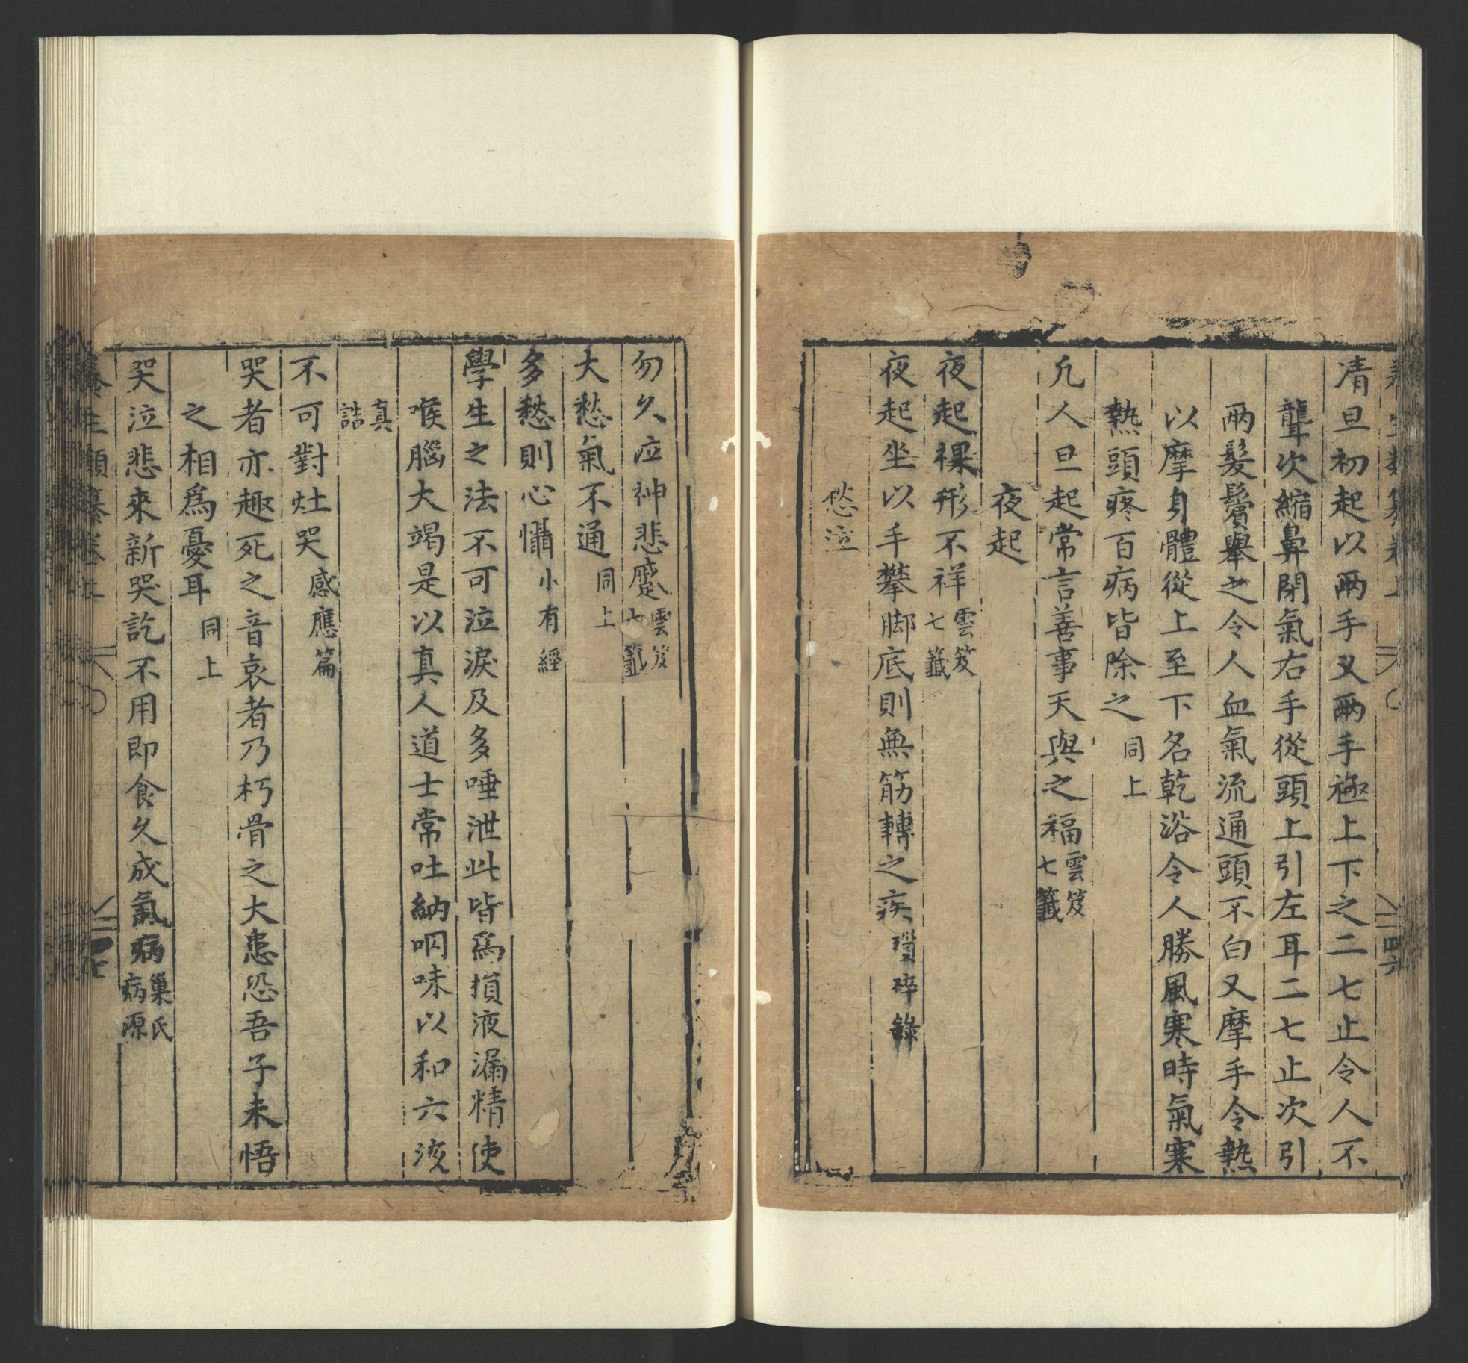 養生類纂卷上
四六
清旦初起以兩手叉兩手極上下之二七止令人不
聾次縮鼻閉氣右手從頭上引左耳二七止次引
兩髮鬢舉之令人血氣流通頭不白又摩手令熱
以摩身體從上至下名乾浴令人勝風寒時氣寒
熱頭疼百病皆除之同上
凢人旦起常言善事天與之福雲笈七籤
夜起
夜起裸形不祥雲笈七籤
夜起坐以手攀脚底則無筋轉之疾瑣碎錄
愁泣
勿久泣神悲蹙雲笈七籤
大愁氣不通同上
多愁則心懾小有經
學生之法不可泣淚及多唾泄此皆爲損液漏精使
喉腦大竭是以真人道士常吐納咽味以和六液
真誥
不可對灶哭感應篇
哭者亦趣死之音哀者乃朽骨之大患恐吾子未悟
之相爲憂耳同上
哭泣悲來新哭訖不用即食久成氣病巢氏病源
養生類纂卷上
四七